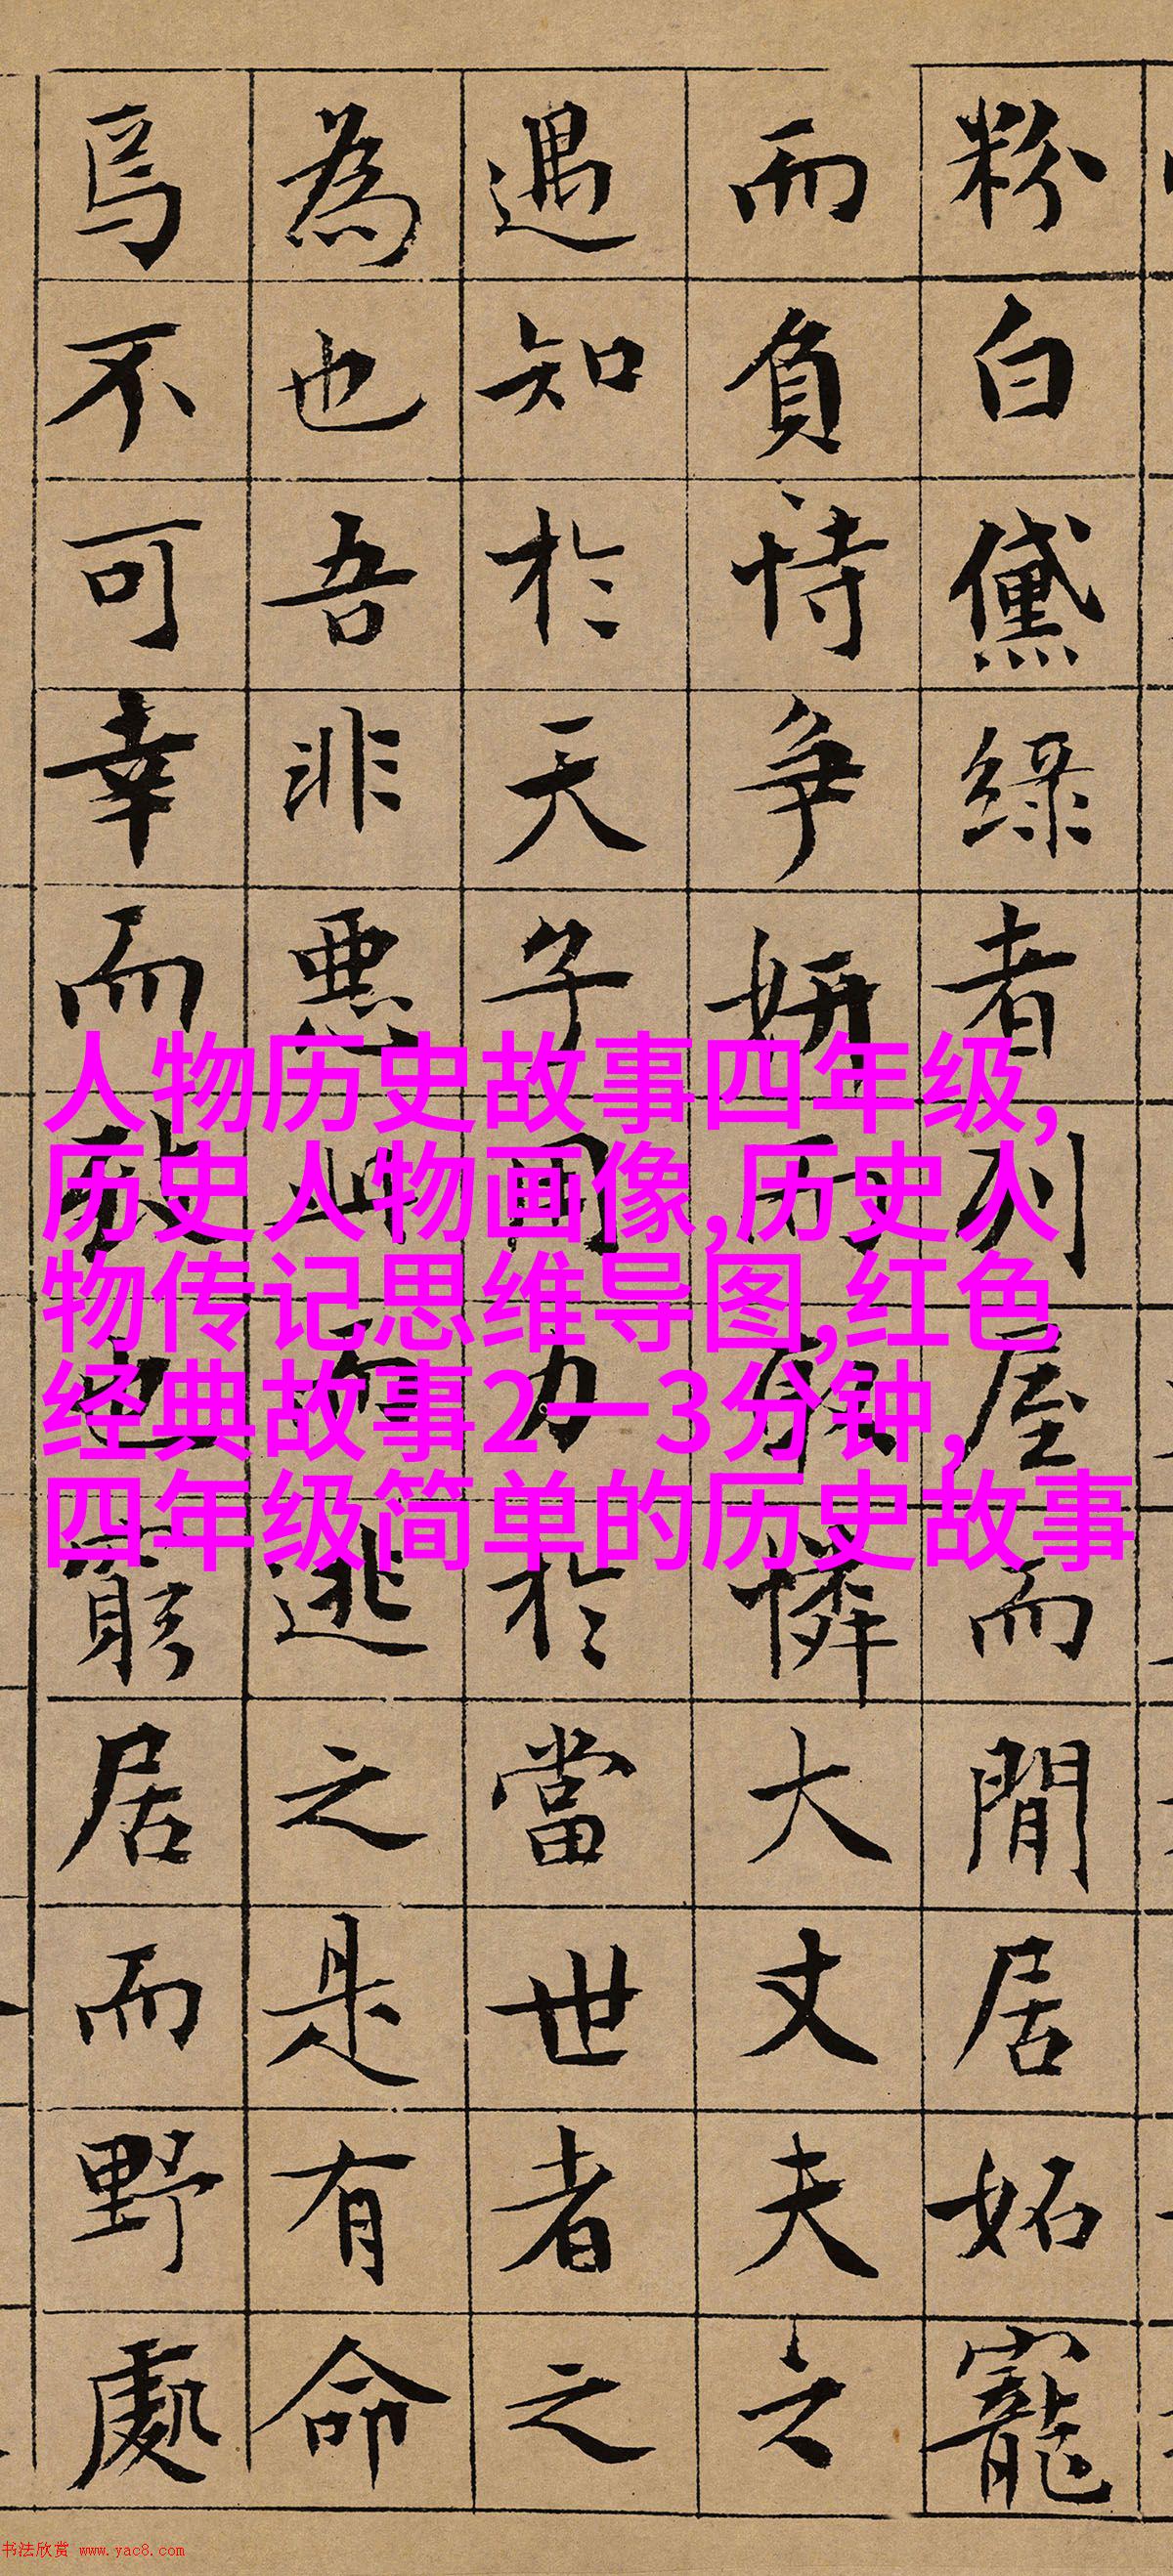 粉白黛綠者列屋而閒居妬寵
而負恃爭妍而取憐大丈夫之
遇知於天子用力於當世者之
為也吾非惡此而逃之是有命
焉不可幸而致也窮居而野處
人物历史故事四年级,
历史人物画像,历史人
物传记思维导图,红色
经典故事2一3分钟,
四年级简单的历史故事
书法欣赏 www.yac8.com